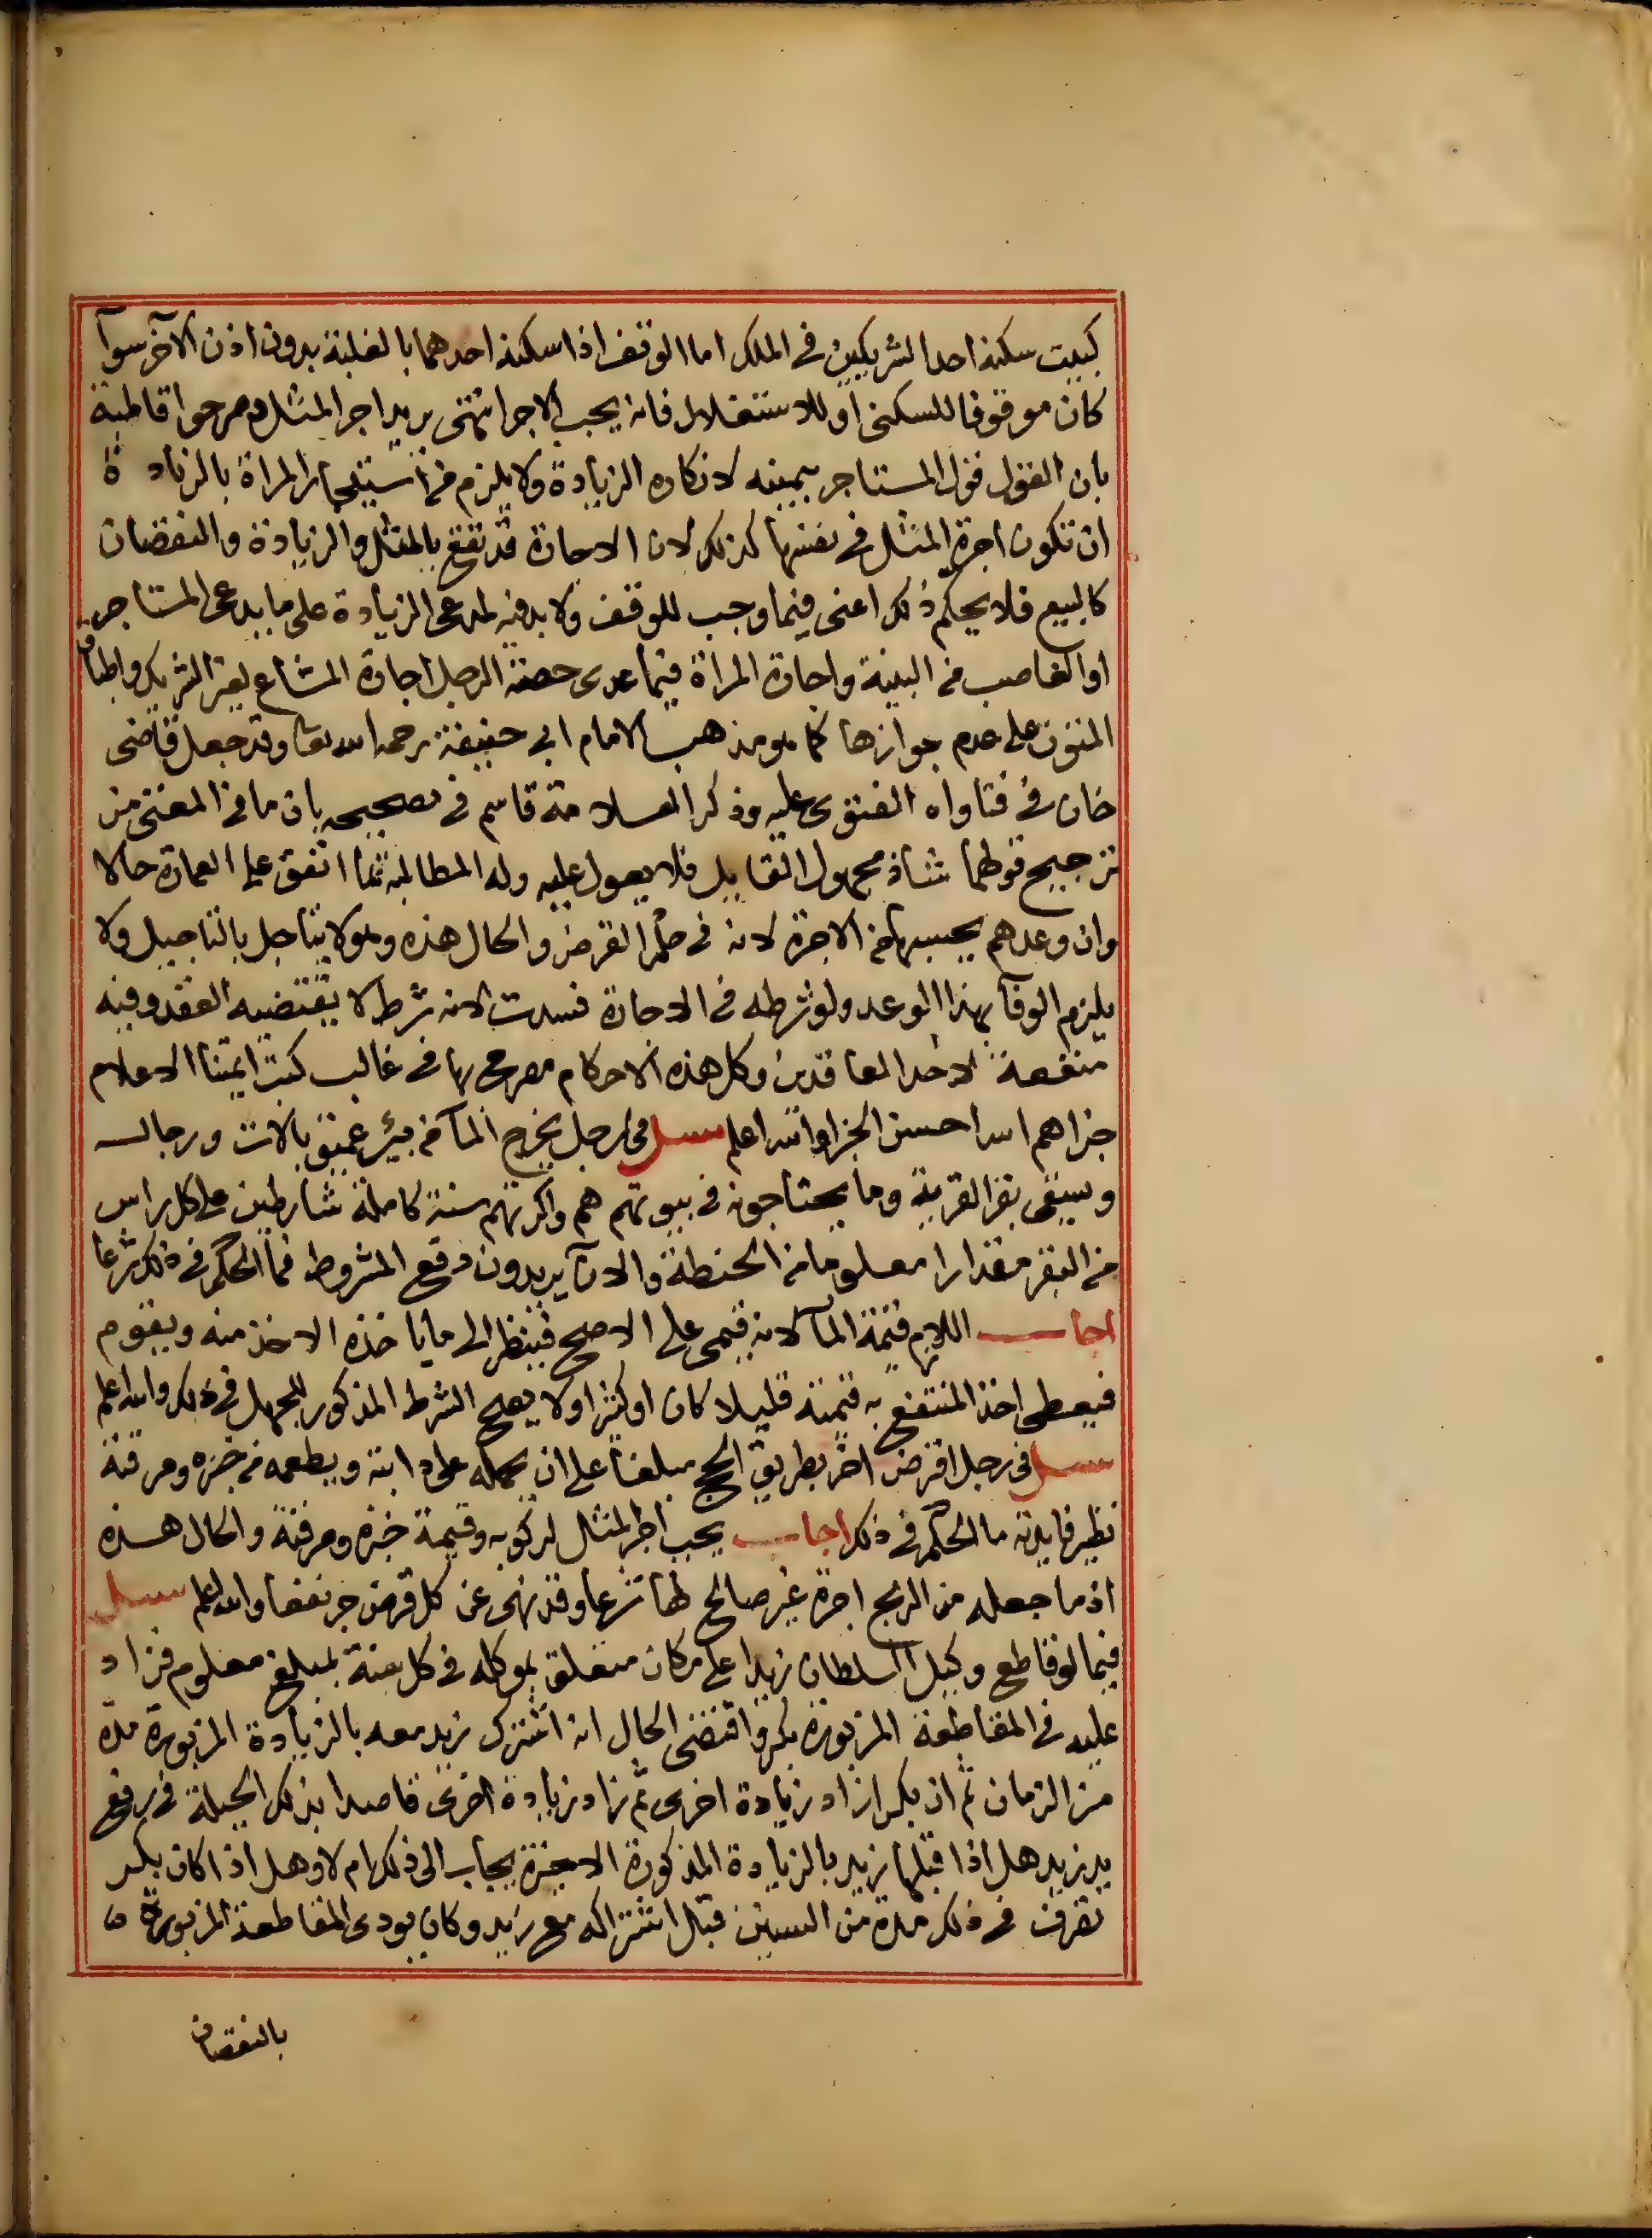 كبيت سكنه احد الشريكين في الملك اما الوقف اذا سكنه احدهما بالغلبة بدون اذن الآخر سوآ
كان موقوفا للسكنى او للاستغلال فانه يجب الاجر انتهى يريد اجر المثل وصرحوا قاطبة
بان القول قول المستاجر بيمينه لانكاره الزيادة ولا يلزم من استيجار المراة بالزيادة
ان تكون اجرة المثل في نفسها كذلك لان الاجارة قد تقع بالمثل والزيادة والنقصان
كالبيع فلا يحكم ذلك اعنى فيما وجب للوقف ولا بد فيه لمدعى الزيادة على ما يدعى المستاجر
او الغاصب من البينة واجارة المراة فيما عدى حصة الرجل اجارة المشاع لغير الشريك واطباق
المتون على عدم جوازها كما هو مذهب الامام ابي حنيفة رحمه الله تعا وقد جعل قاضى
خان في فتاواه الفتوى عليه وذكر العلامة قاسم في تصحيحه بان ما في المغنى من
ترجيح قولهما شاذ مجهول القايل فلا يعول عليه وله المطالبة بما انفق على العمارة حالا
وان وعدهم بحسبها من الاجرة لانه في حكم القرض والحال هذه وهو لا يتاجل بالتاجيل ولا
يلزم الوفآ بهذا الوعد ولو شرطه في الاجارة فسدت لانه شرط لا يقتضيه العقد وفيه
منفعة لاحد العاقدين وكل هذه الاحكام مصرح بها في غالب كتب ايمتنا الاعلام
جزاهم الله احسن الجزا والله اعلم سيل في رجل يخرج المآ من بير عميق بالات ورجال
ويسقى بقر القرية وما يحتاجون في بيوتهم هم واكرتهم سنة كاملة شارطين على كل راس
من البقر مقدارا معلوما من الحنطة والان يريدون دفع المشروط فما الحكم في ذلك شرعا
اجاب اللازم قيمة المآ لانه قيمى على الاصح فينظر الى ما ياخذه الاخذ منه ويقوم
فيعطى اخذ المنتفع به قيمته قليلا كان او كثيرا ولا يصح الشرط المذكور للجهل في ذلك والله اعلم
سيل في رجل اقرض اخر بطريق الحج مبلغا على ان يحمله على دابته ويطعمه من خبزه ومرقته
نظير فايدته ما الحكم في ذلك اجاب يجب اجر المثل لركوبه وقيمة خبزه ومرقته والحال هذه
اذ ما جعله من الربح اجرة غير صالح لها شرعا وقد نهى عن كل قرض جر نفعا والله اعلم سيل
فيما لو قاطع وكيل السلطان زيدا على مكان متعلق بموكله في كل سنة بمبلغ معلوم فزاد
عليه في المقاطعة المزبورة بكر واقتضى الحال ان اشترك زيد معه بالزيادة المزبورة مدة
من الزمان ثم ان بكرا زاد زيادة اخرى ثم زاد زيادة اخرى قاصدا بذلك الحيلة في رفع
يد زيد هل اذا قبلها زيد بالزيادة المذكورة الاخيرة يجاب الى ذلك ام لا وهل اذا كان بكر
تصرف في ذلك مدة من السنين قبل اشتراكه مع زيد وكان يودى المقاطعة المزبورة
بالنقصان